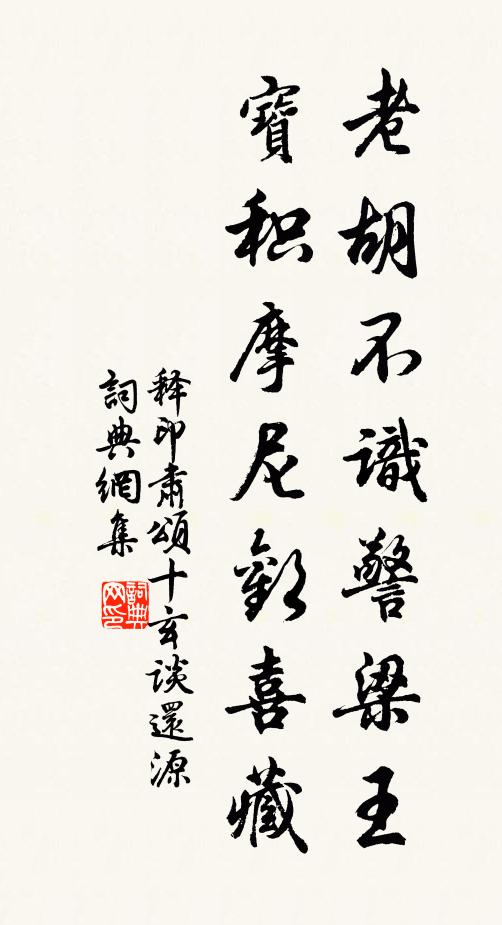 老胡不識警梁王
寶积摩尼勸喜藏
释印肅頌十玄談還源
詞典網集
詞典
网印